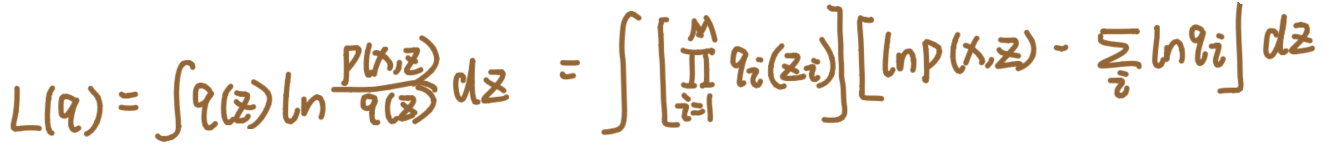 L(q) = ∫q(z) ln \frac{p(x,z)}{q(z)} dz = ∫ [∏_{i=1}^{M} q_i(z_i)] [ln p(x,z) - ∑_i ln q_i] dz